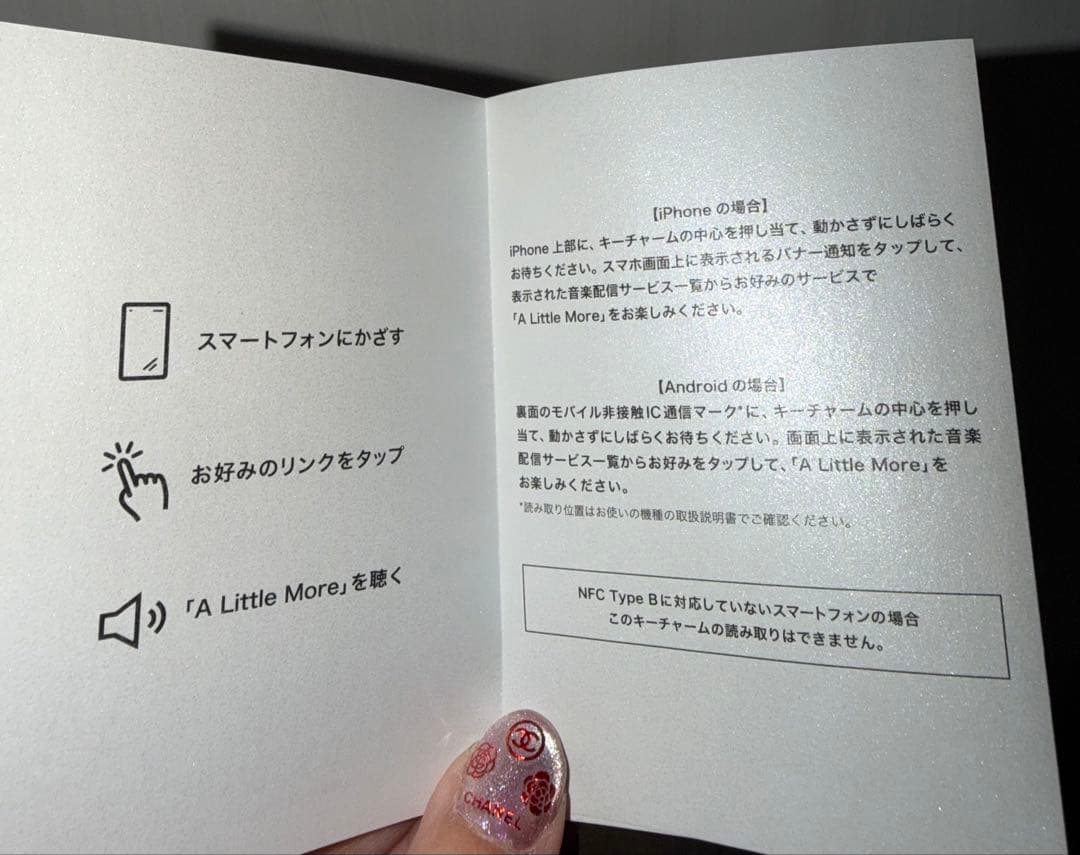 スマートフォンにかざす
お好みのリンクをタップ
「A Little More」を聴く
【iPhone の場合】
iPhone 上部に、キーチャームの中心を押し当て、動かさずにしばらく
お待ちください。スマホ画面上に表示されるバナー通知をタップして、
表示された音楽配信サービス一覧からお好みのサービスで
「A Little More」をお楽しみください。
【Android の場合】
裏面のモバイル非接触IC通信マーク*に、キーチャームの中心を押し
当て、動かさずにしばらくお待ちください。画面上に表示された音楽
配信サービス一覧からお好みをタップして、「A Little More」を
お楽しみください。
*読み取り位置はお使いの機種の取扱説明書でご確認ください。
NFC Type Bに対応していないスマートフォンの場合
このキーチャームの読み取りはできません。
CHANEL